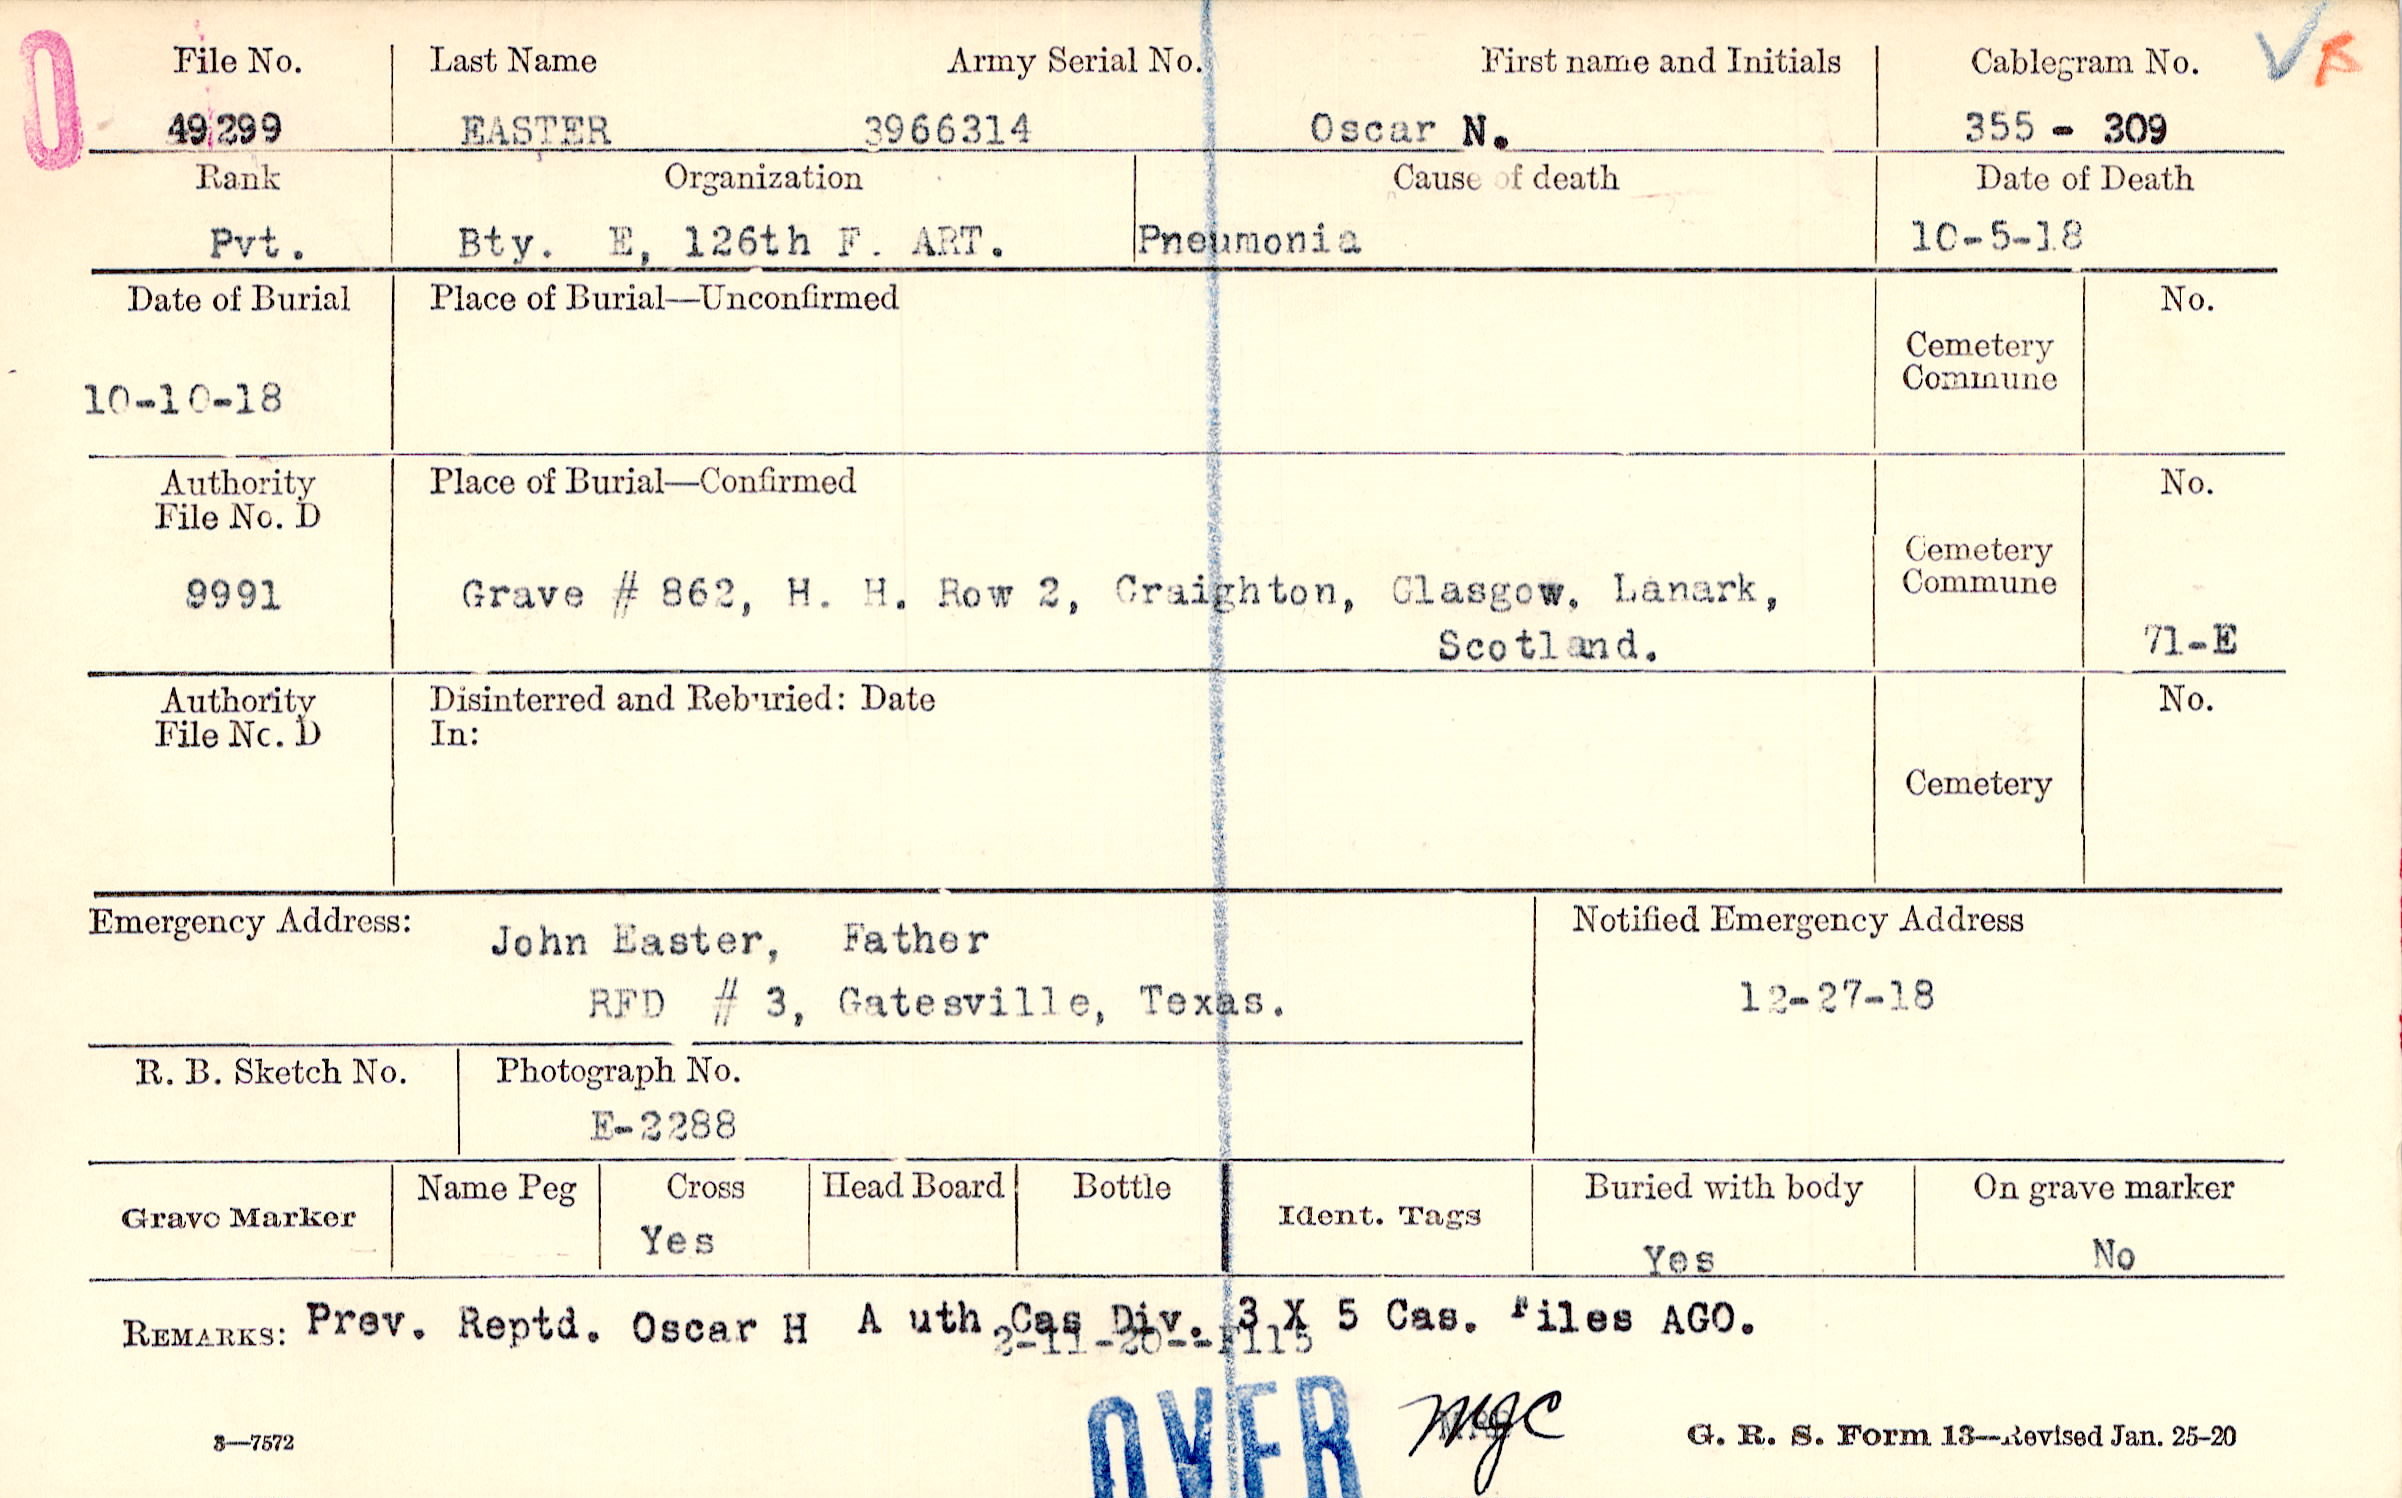 0
File No. Last Name Army Serial No. First name and Initials Cablegram No. VB
49299 EASTER 3966314 Oscar N. 355 - 309
Rank Organization Cause of death Date of Death
Pvt. Bty. E, 126th F. ART. Pneumonia 10-5-18
Date of Burial Place of Burial—Unconfirmed No.
Cemetery
Commune
10-10-18
Authority Place of Burial—Confirmed No.
File No. D
Cemetery
Commune
9991 Grave # 862, H. H. Row 2, Craighton, Glasgow, Lanark,
Scotland. 71-E
Authority Disinterred and Reburied: Date No.
File No. D In:
Cemetery
Emergency Address: John Easter, Father Notified Emergency Address
RFD # 3, Gatesville, Texas. 12-27-18
R. B. Sketch No. Photograph No.
E-2288
Grave Marker Name Peg Cross Head Board Bottle Ident. Tags Buried with body On grave marker
Yes Yes No
REMARKS: Prev. Reptd. Oscar H A uth Cas Div. 3 X 5 Cas. Files AGO.
2-11-20--F115
OVER MJC
3—7572 G. R. S. Form 13—Revised Jan. 25-20